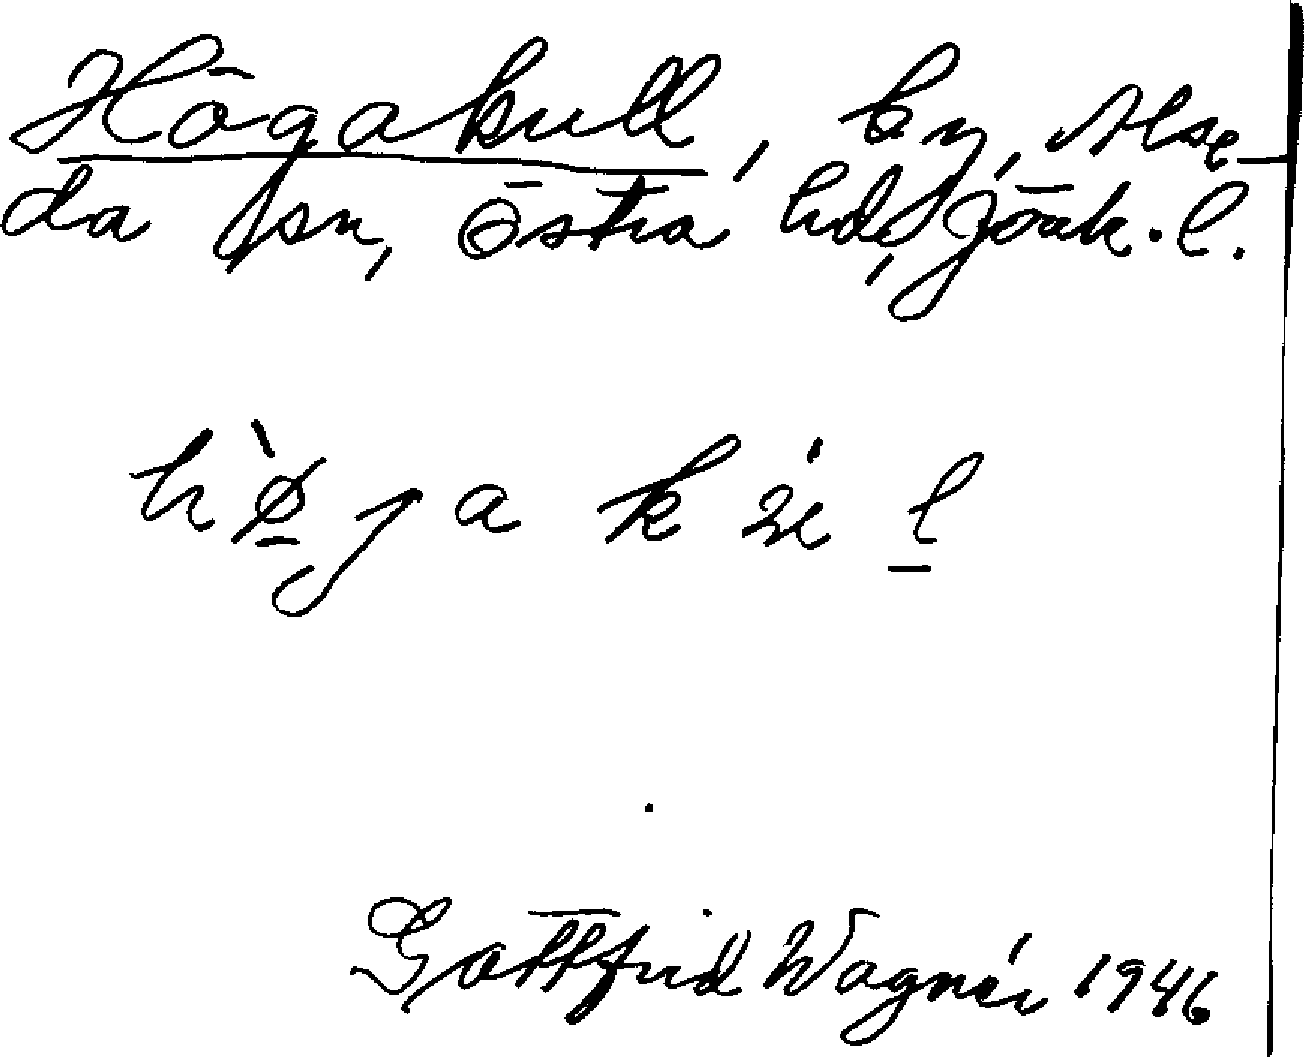 Högakull, by, Alse-
da sn, östra hd, jönk. l.
hø̀ga kúl
Gottfrid Wagnér 1946